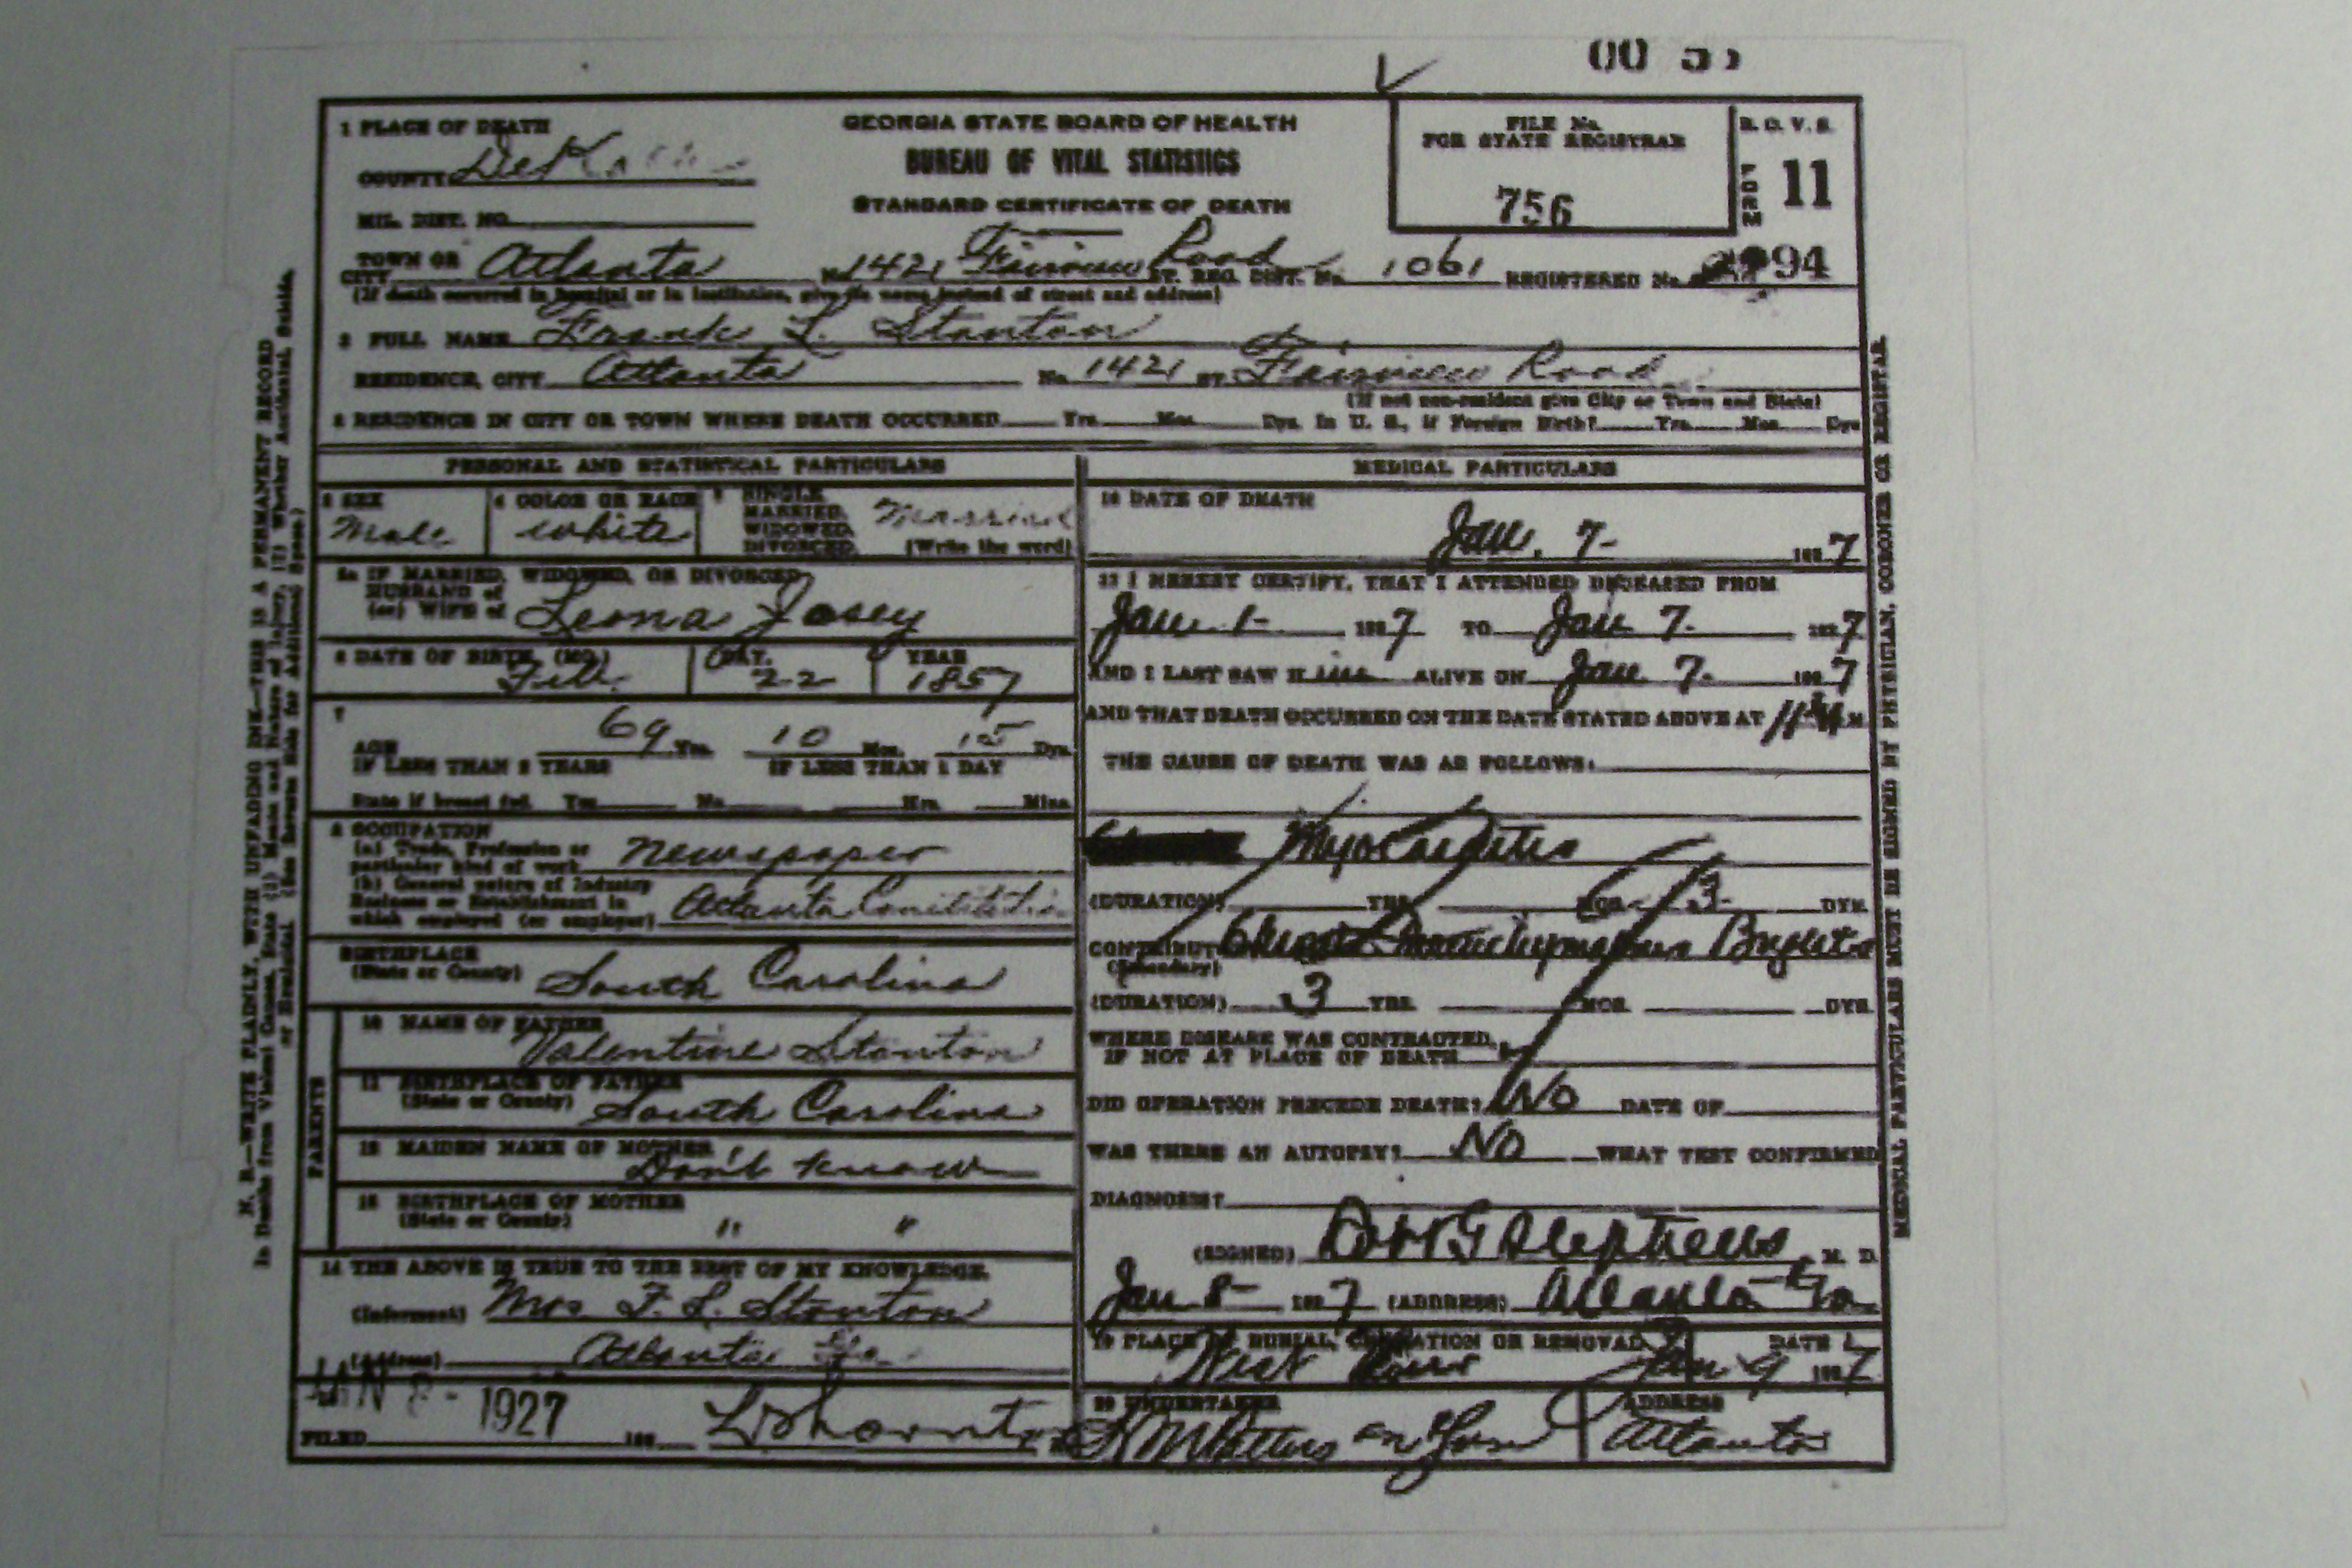 1 PLACE OF DEATH
COUNTY
MIL. DIST. NO.
TOWN OR CITY Atlanta
GEORGIA STATE BOARD OF HEALTH
BUREAU OF VITAL STATISTICS
STANDARD CERTIFICATE OF DEATH
FILE No.
FOR STATE REGISTRAR
756
B. O. V. S.
FORM 11
No. 1421 Fairview Road ST. REG. DIST. No. 1061 REGISTERED No. 94
(If death occurred in hospital or in institution, give its name instead of street and address)
2 FULL NAME Frank L. Stanton
RESIDENCE, CITY Atlanta No. 1421 ST. Fairview Road
(If not non-resident give City or Town and State)
RESIDENCE IN CITY OR TOWN WHERE DEATH OCCURRED Yrs. Mos. Dys. In U. S., if Foreign Birth? Yrs. Mos. Dys.
PERSONAL AND STATISTICAL PARTICULARS
3 SEX
Male
4 COLOR OR RACE
white
5 SINGLE,
MARRIED,
WIDOWED,
DIVORCED,
Married
(Write the word)
5a IF MARRIED, WIDOWED, OR DIVORCED
HUSBAND of
(or) WIFE of Leona Josey
6 DATE OF BIRTH, (MO.) Feb. DAY. 22 YEAR 1857
7
AGE 69 Yrs. 10 Mos. 15 Dys.
IF LESS THAN 2 YEARS IF LESS THAN 1 DAY
State if breast fed. Yes No Hrs. Mins.
8 OCCUPATION
(a) Trade, Profession or
particular kind of work Newspaper
(b) General nature of Industry
Business or Establishment in
which employed (or employer) Atlanta Constitution
BIRTHPLACE
(State or County) South Carolina
PARENTS
10 NAME OF FATHER
Valentine Stanton
11 BIRTHPLACE OF FATHER
(State or County) South Carolina
12 MAIDEN NAME OF MOTHER
Don't know
13 BIRTHPLACE OF MOTHER
(State or County) " "
14 THE ABOVE IS TRUE TO THE BEST OF MY KNOWLEDGE.
(Informant) Mrs F. L. Stanton
(Address) Atlanta Ga.
JAN 8- 1927
FILED 192
MEDICAL PARTICULARS
16 DATE OF DEATH
Jan. 7- 1927
17 I HEREBY CERTIFY, THAT I ATTENDED DECEASED FROM
Jan 1- 1927 TO Jan 7- 1927
AND I LAST SAW Him ALIVE ON Jan 7- 1927
AND THAT DEATH OCCURRED ON THE DATE STATED ABOVE AT M.
THE CAUSE OF DEATH WAS AS FOLLOWS:
Myocarditis
(DURATION) YRS. MOS. 3 DYS.
CONTRIBUTORY
(Secondary)
(DURATION) 3 YRS. MOS. DYS.
WHERE DISEASE WAS CONTRACTED,
IF NOT AT PLACE OF DEATH
DID OPERATION PRECEDE DEATH? No DATE OF
WAS THERE AN AUTOPSY? No WHAT TEST CONFIRMED
DIAGNOSIS?
(SIGNED) M. D.
Jan 8- 1927 (ADDRESS) Atlanta Ga
19 PLACE OF BURIAL, CREMATION OR REMOVAL
West View
DATE
Jan 9 1927
20 UNDERTAKER
ADDRESS
Atlanta
N. B.—WRITE PLAINLY, WITH UNFADING INK—THIS IS A PERMANENT RECORD
In Deaths from Violent Causes, State (1) Means and Nature of Injury, (2) Whether Accidental, Suicide,
or Homicidal. (See Reverse Side for Additional Space.)
MEDICAL PARTICULARS MUST BE SIGNED BY PHYSICIAN, CORONER OR REGISTRAR.